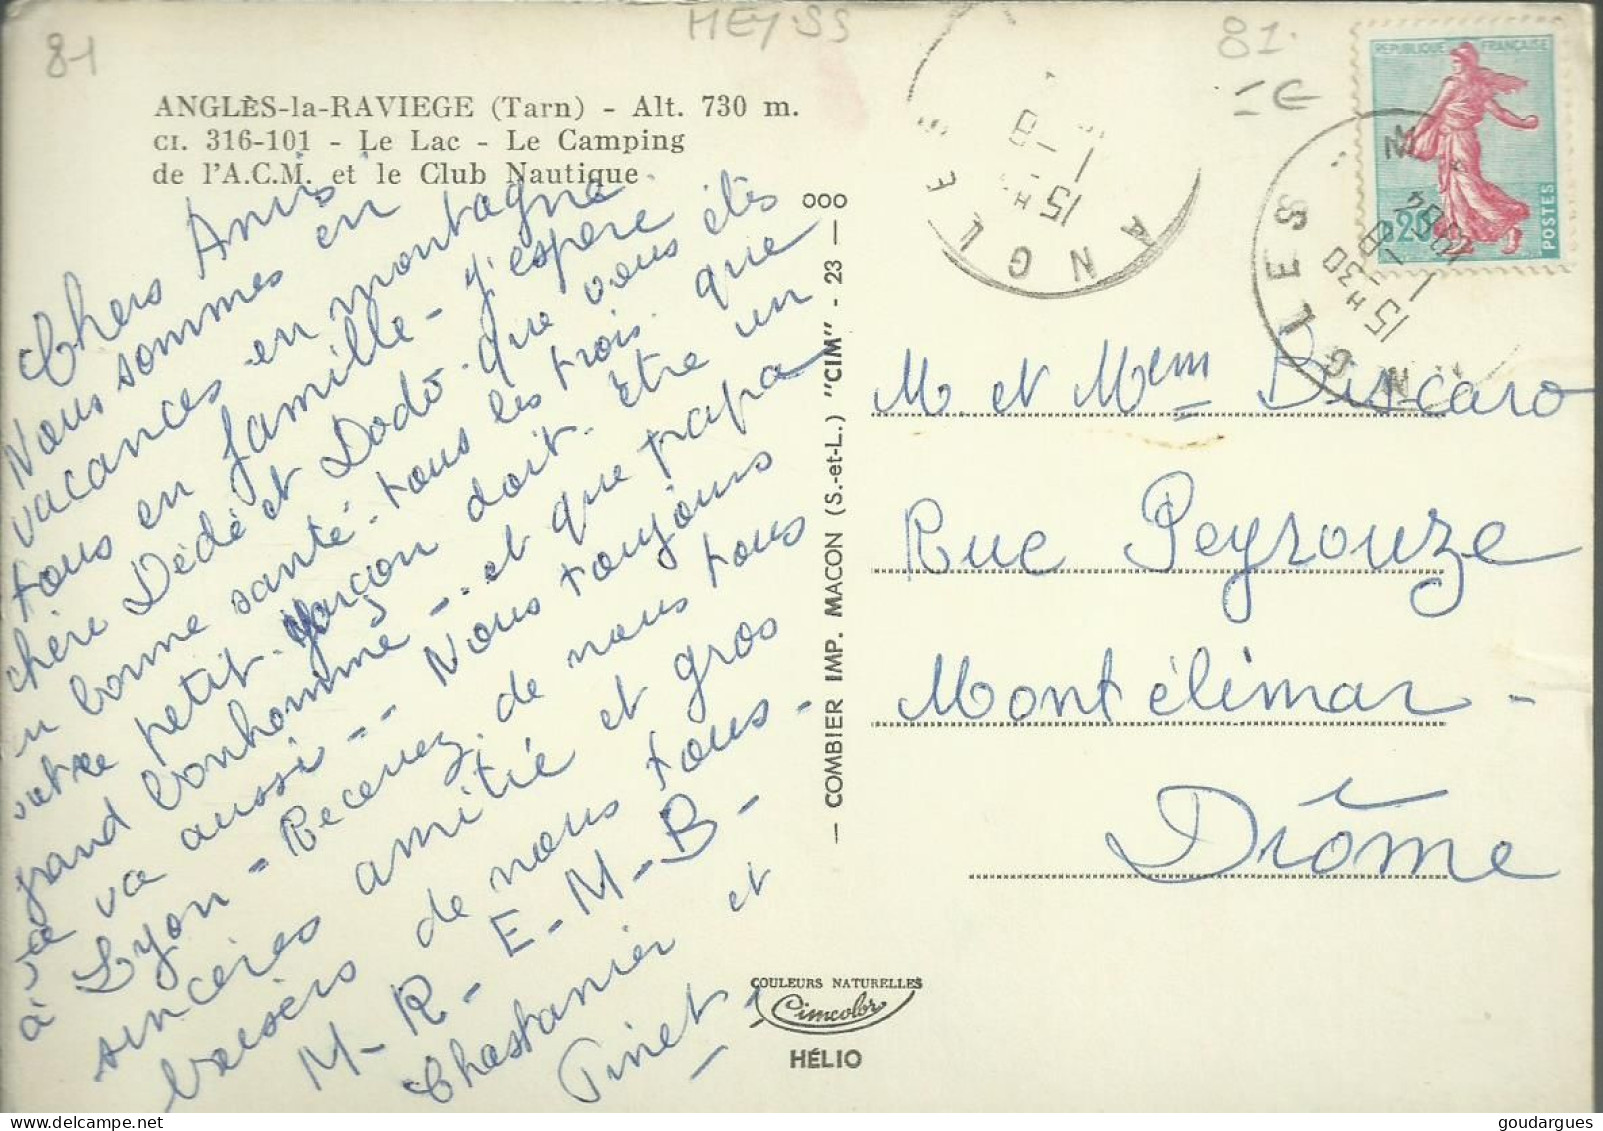 81
MEYSS
81.
ANGLÈS-la-RAVIEGE (Tarn) - Alt. 730 m.
CI. 316-101 - Le Lac - Le Camping
de l'A.C.M. et le Club Nautique
Chers Amis
Nous sommes en
vacances en montagne
tous en famille - j'espère
chère Dédé et Dodo. que vous êtes
en bonne santé. tous les trois. que
votre petit garçon doit. être un
grand bonhomme - et que papa
va aussi -- Nous toujours
à Lyon - Recevez. de nous tous
sincères amitié et gros
baisers de nous tous -
M - R - E - M - B -
Chastanier et
Pinet
ooo
— COMBIER IMP. MACON (S.-et-L.) "CIM" - 23 —
COULEURS NATURELLES
Cimcolor
HÉLIO
ANGLES
15 H
1 - 8
ANGLES
15 H 30
1 - 8
REPUBLIQUE FRANÇAISE
0,20
POSTES
M. et Mem Buscaro
Rue Peyrouze
Montélimar -
Drôme
goudargues